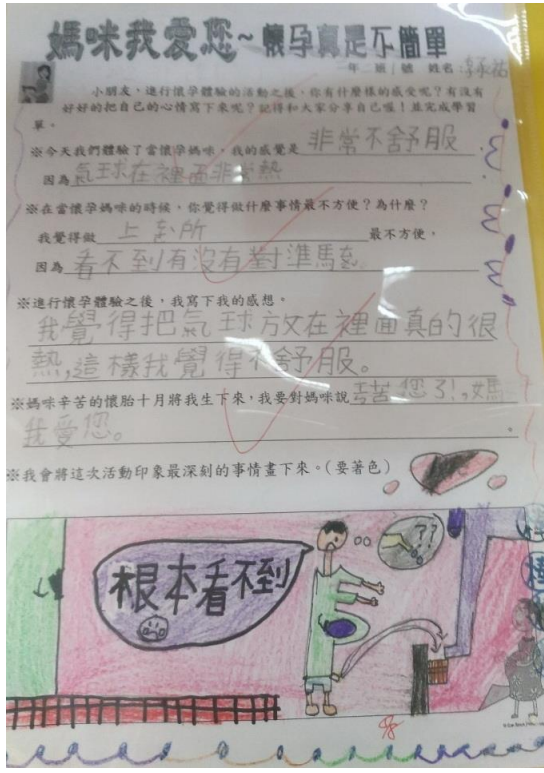 媽咪我愛您~懷孕真是不簡單
一年 二班 1號 姓名:
小朋友，進行懷孕體驗的活動之後，你有什麼樣的感受呢？有沒有
好好的把自己的心情寫下來呢？記得和大家分享自己喔！並完成學習
單。
※今天我們體驗了當懷孕媽咪，我的感覺是 非常不舒服
因為 氣球在裡面非常熱
※在當懷孕媽咪的時候，你覺得做什麼事情最不方便？為什麼？
我覺得做 上廁所 最不方便，
因為 看不到有沒有對準馬桶
※進行懷孕體驗之後，我寫下我的感想。
我覺得把氣球放在裡面真的很
熱,這樣我覺得不舒服。
※媽咪辛苦的懷胎十月將我生下來，我要對媽咪說 辛苦您了!,媽
我愛您。
※我會將這次活動印象最深刻的事情畫下來。(要著色)
??
根本看不到